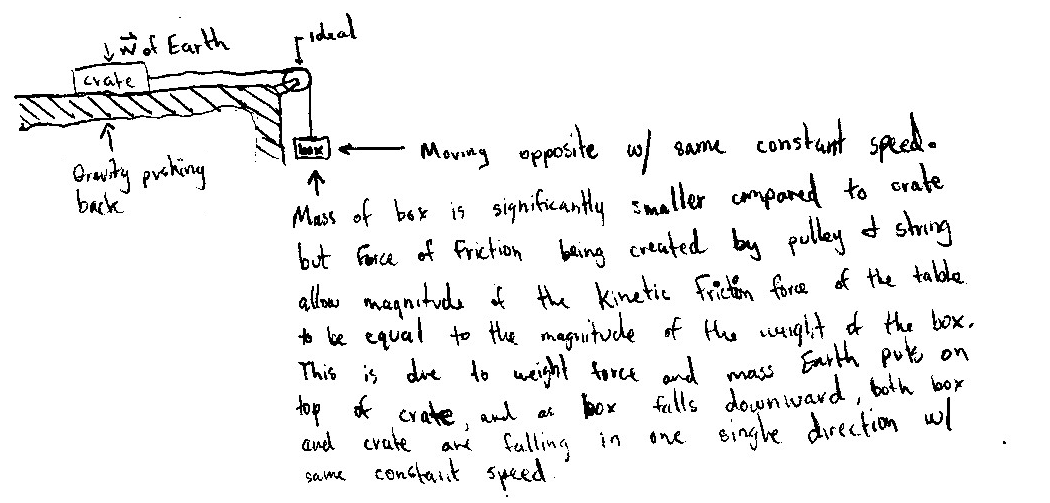 ideal
↓ N⃗ of Earth
crate
box
Gravity pushing
back
Moving opposite w/ same constant speed.
Mass of box is significantly smaller compared to crate
but Force of Friction being created by pulley & string
allow magnitude of the Kinetic Friction force of the table
to be equal to the magnitude of the weight of the box.
This is due to weight force and mass Earth puts on
top of crate, and as box falls downward, both box
and crate are falling in one single direction w/
same constant speed.